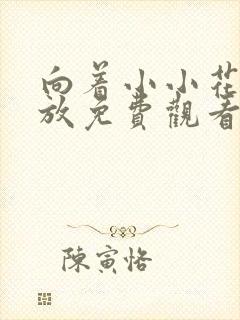 向着小小花
放免費觀看
陳寅恪